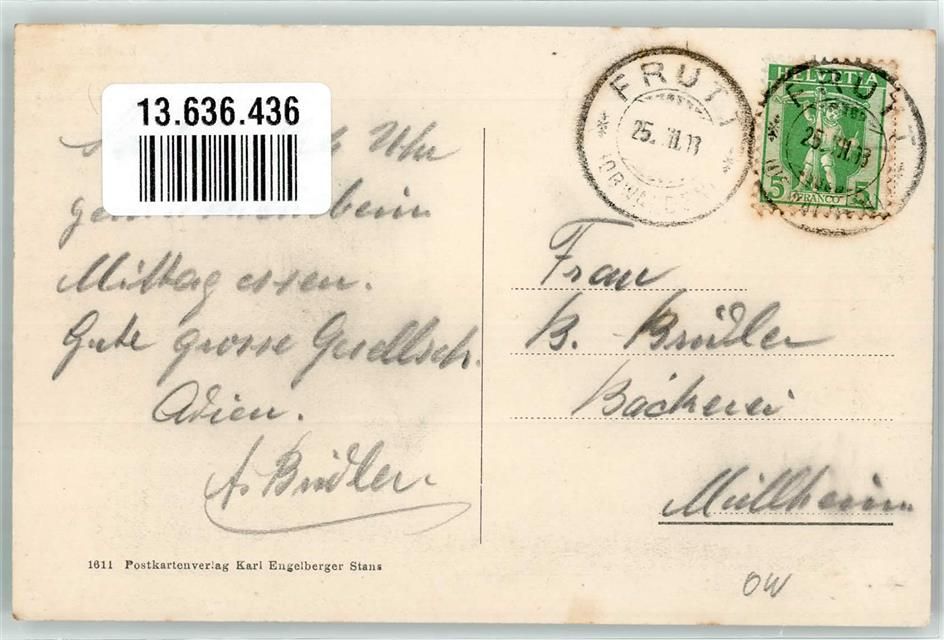 13.636.436
Uhr
beim
Mittagessen.
Gute grosse Gesellsch.
Adieu.
A. Bridler.
1611 Postkartenverlag Karl Engelberger Stans
FRUTT
25. VII. 13
(OBWALDEN)
HELVETIA
5 FRANCO 5
FRUTT
25. VII. 13
Frau
B. Bridler
Bäckerei
Müllheim
OW